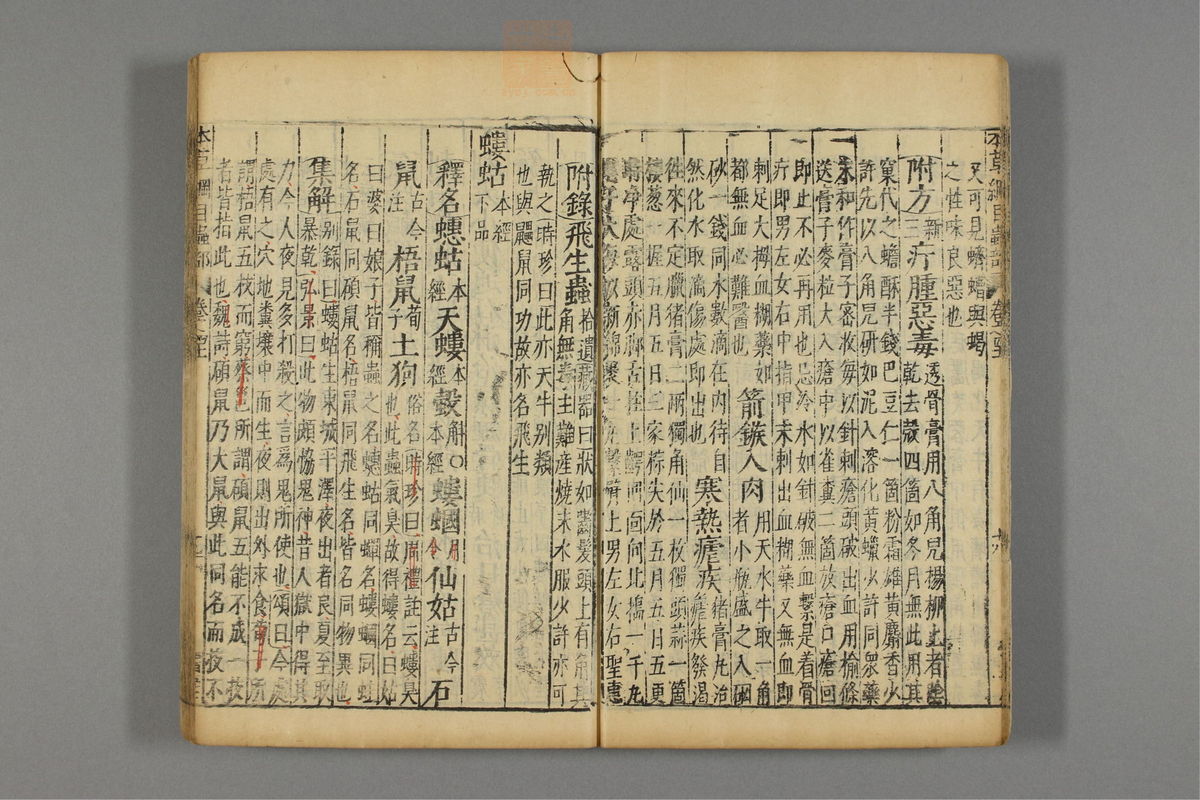 又可見蠐螬與蝎
之性味良惡也
附方新三疔腫惡毒透骨膏用八角兒楊柳上者陰
乾去殼四箇如冬月無此用其
窠代之蟾酥半錢巴豆仁一箇粉霜雄黃麝香少
許先以八角兒研如泥入溶化黃蠟少許同眾藥
末和作膏子密收每以針刺瘡頭破出血用榆條
送膏子麥粒大入瘡中以雀糞二箇放瘡口瘡回
即止不必再用也忌冷水如針破無血繫是着骨
疔即男左女右中指甲末刺出血糊藥又無血即
刺足大拇血糊藥如
都無血必難醫也箭鏃入肉用天水牛取一角
者小瓶盛之入硇
砂一錢同水數滴在內待自
然化水取滴傷處即出也寒熱瘧疾豬膏丸治
瘧疾發渴
往來不定臘豬膏二兩獨角仙一枚獨頭蒜一箇
樓葱一握五月五日三家粽尖於五月五日五更
淨處露頭赤腳舌拄上齶回面向北搗一千
新綿裹 繫臂上男左女右聖惠
附錄飛生蟲拾遺藏器曰狀如齧髮頭上有角其
角無毒主難產燒末水服少許亦可
執之時珍曰此亦天牛別類
也與鼯鼠同功故亦名飛生
螻蛄本經下品
釋名蟪蛄本經天螻本經螜解〇本經螻蟈月令仙姑古今注石
鼠古今注梧鼠荀子土狗俗名時珍曰周禮註云螻臭
也此蟲氣臭故得螻名曰姑
曰婆曰娘子皆稱蟲之名蟪蛄同蟬名螻蟈同蛙
名石鼠同碩鼠名梧鼠同飛生名皆名同物異也
集解別錄曰螻蛄生東城平澤夜出者良夏至取
暴乾弘景曰此物頗協鬼神昔人獄中得其
力今人夜見多打殺之言為鬼所使也頌曰今處
處有之穴地糞壤中而生夜則出外求食荀子所
謂梧鼠五技而窮蔡邕所謂碩鼠五能不成一技
者皆指此也魏詩碩鼠乃大鼠與此同名而技不